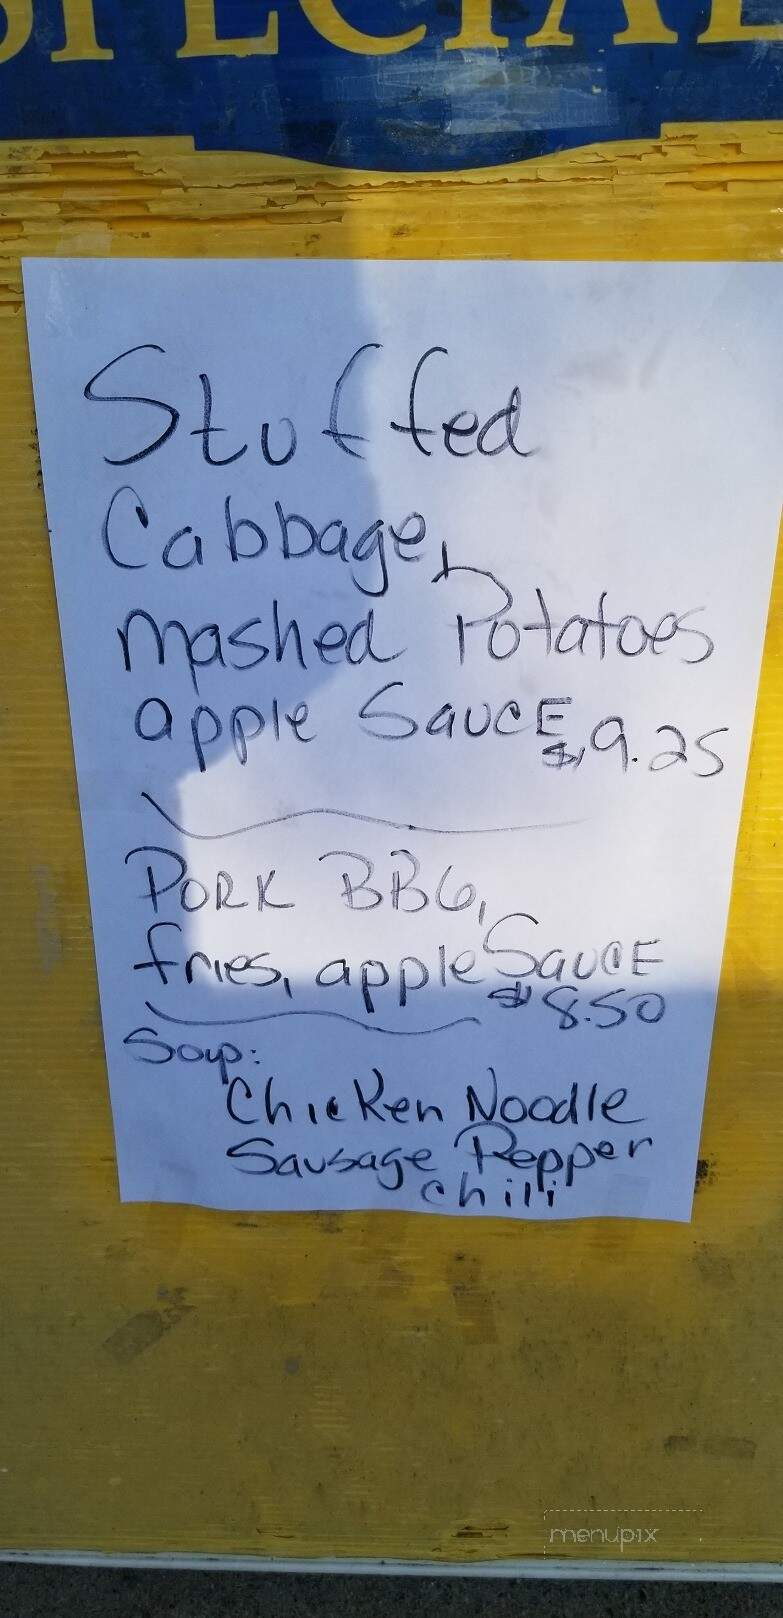 SPECIAL
Stuffed
Cabbage,
mashed Potatoes
apple SaucE $9.25
PORK BBG,
fries, apple SaucE
$8.50
Soup:
Chicken Noodle
Sausage Pepper
chili
menupix